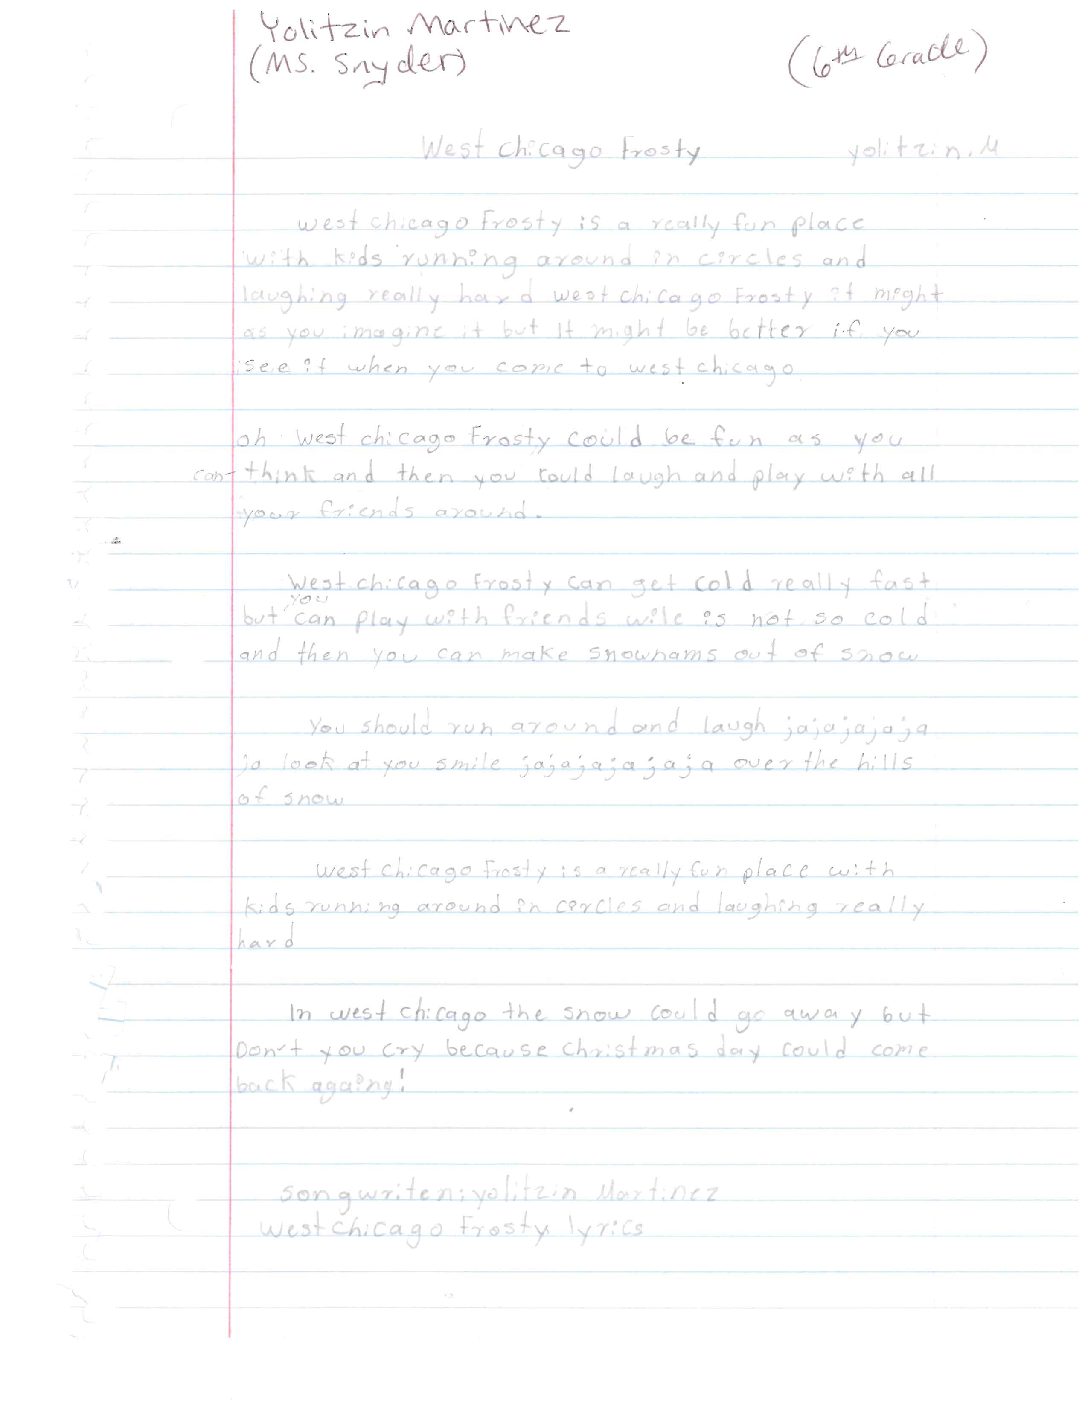 Yolitzin Martinez
(Ms. Snyder) (6th Grade)
West chicago Frosty yolitzin.M
west chicago Frosty is a really fun place
with kids running around in circles and
laughing really hard west chicago Frosty it might
as you imagine it but It might be better if you
see it when you come to west chicago
oh west chicago Frosty could be fun as you
can think and then you could laugh and play with all
your friends around.
West chicago Frosty can get cold really fast
but you can play with friends wile is not so cold
and then you can make snownams out of snow
You should run around and laugh jajajajaja
ja look at you smile jajajajajaja over the hills
of snow
west chicago Frosty is a really fun place with
kids running around in circles and laughing really
hard
In west chicago the snow could go away but
Don't you cry because christmas day could come
back againg!
songwriten:yolitzin Martinez
west chicago Frosty lyrics